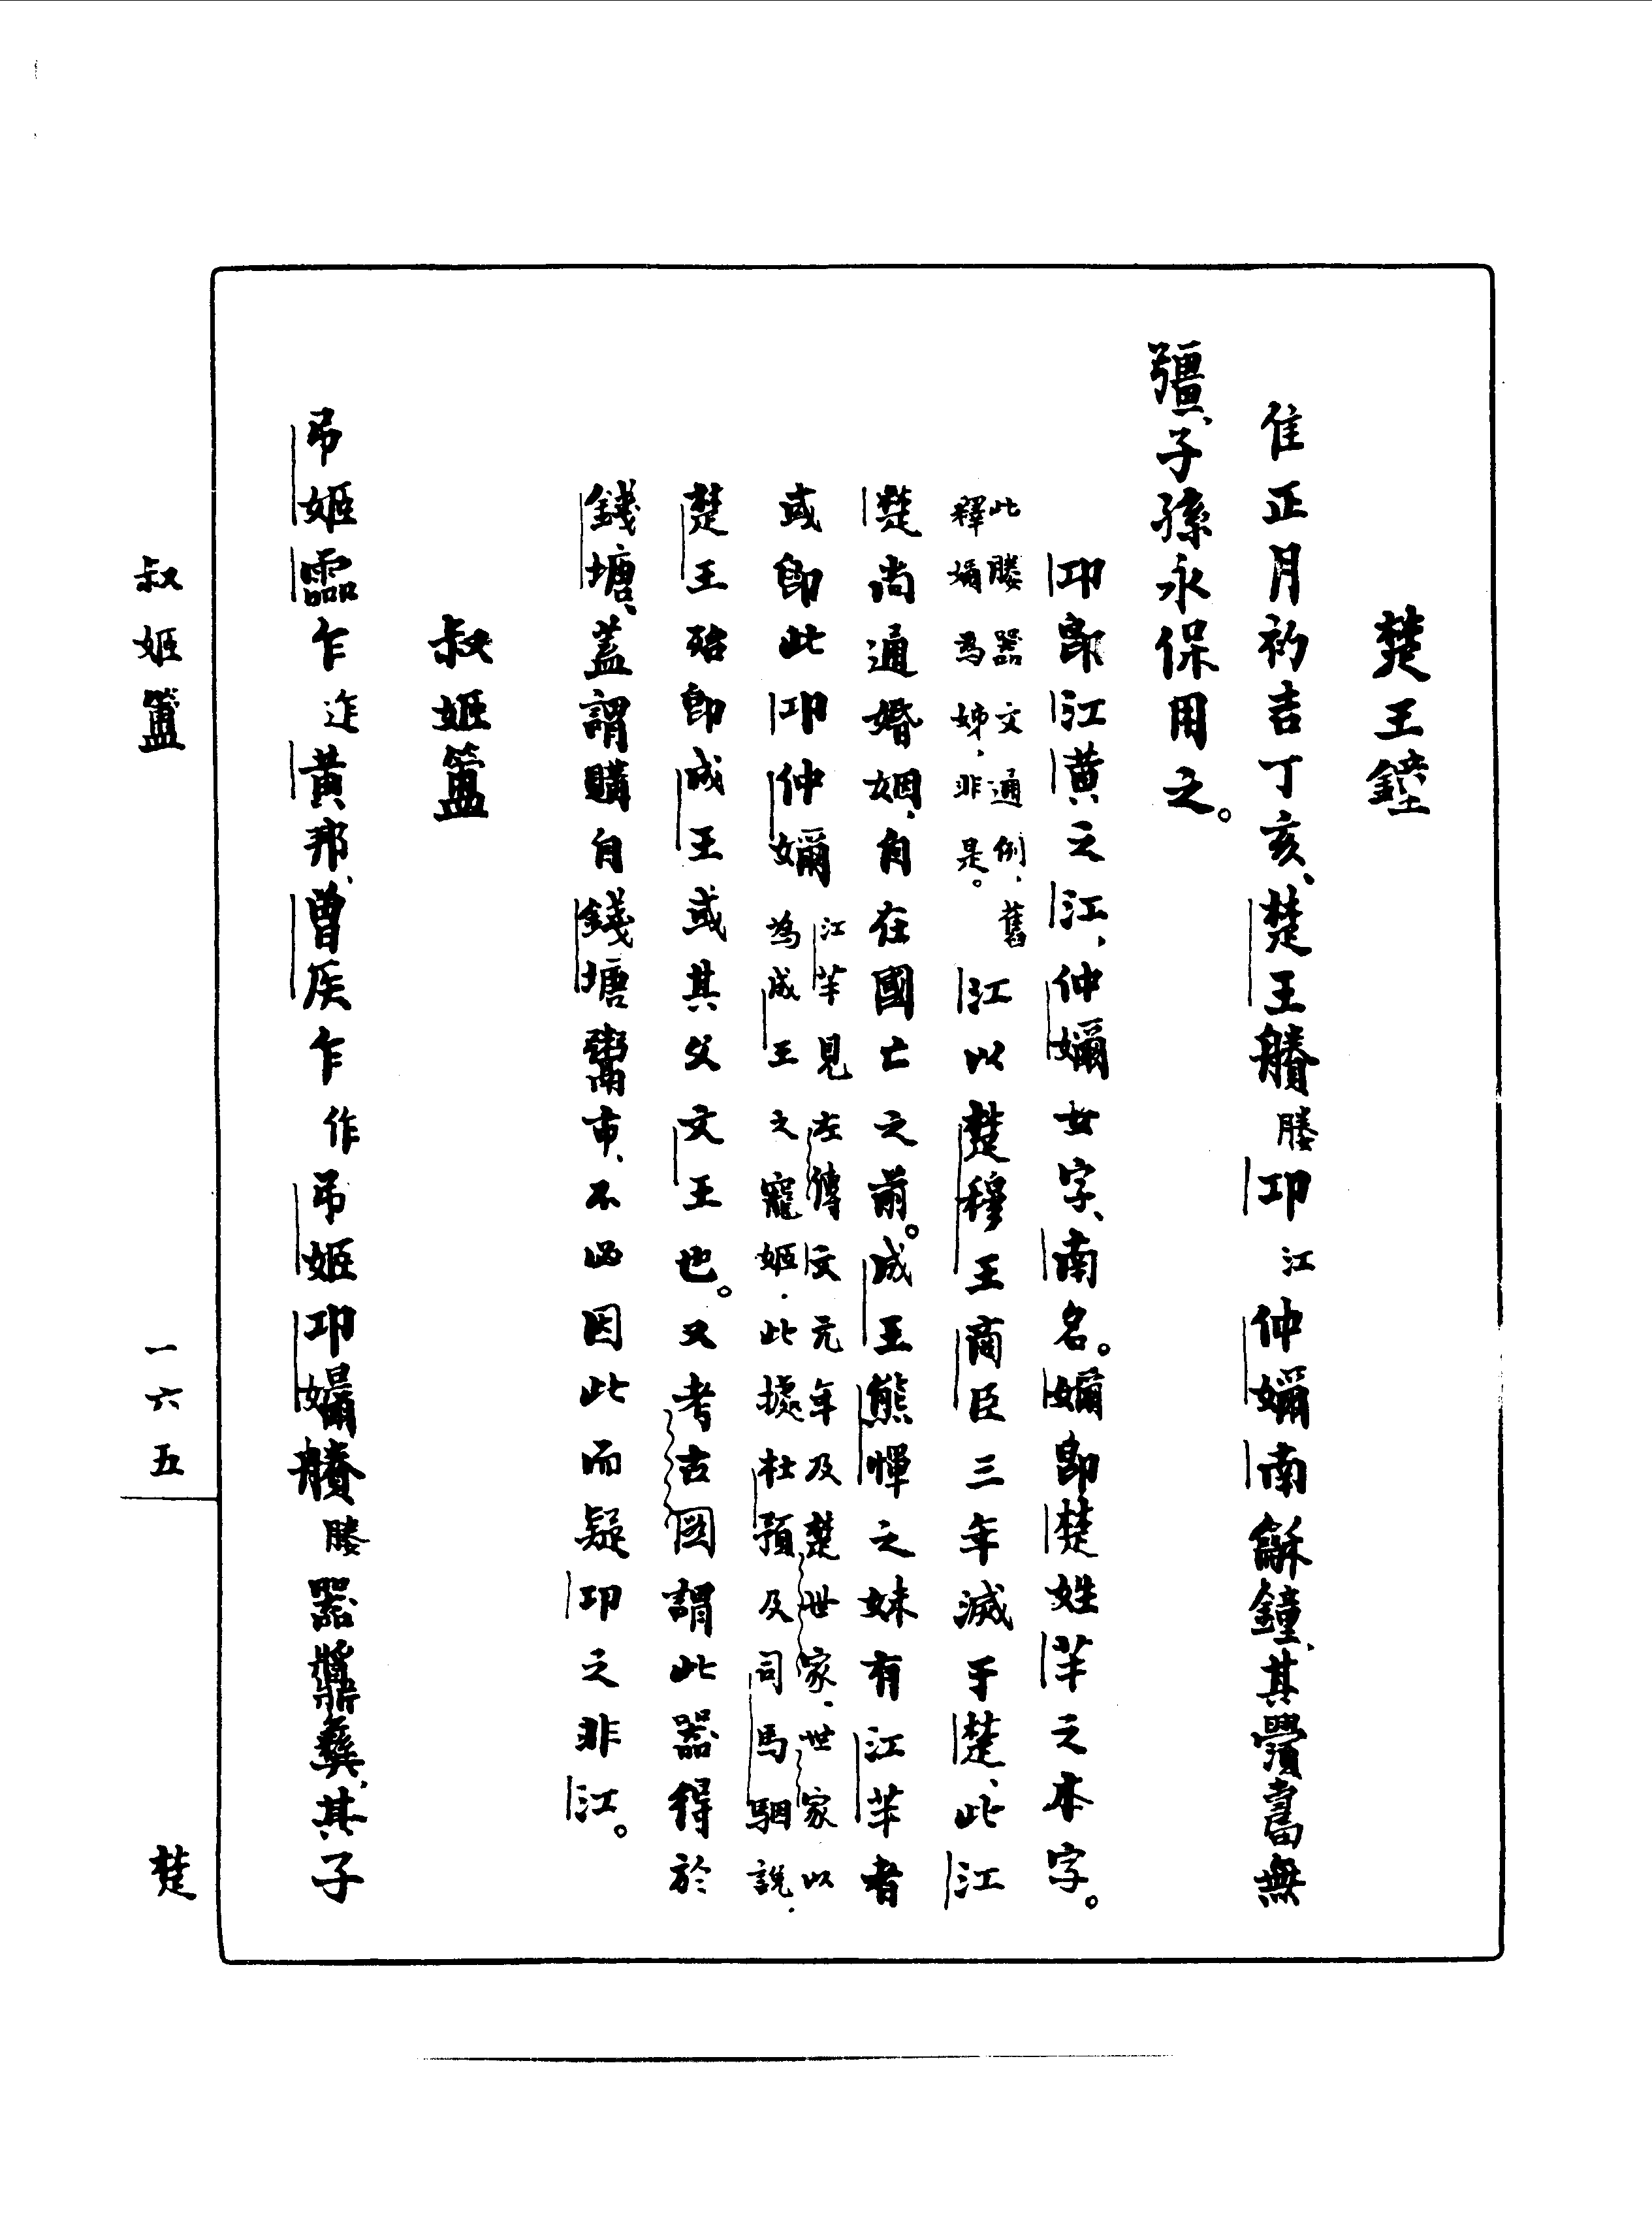 楚王鐘
隹正月初吉丁亥、楚王賸媵邛江仲嬭南龢鐘、其眉壽無
彊、子孫永保用之。
邛即江黃之江，仲嬭女字、南名。嬭即楚姓羋之本字。
此媵器文通例，舊釋嬭為姊，非是。江以楚穆王商臣三年滅于楚、此江
楚尚通婚姻，自在國亡之前。成王熊惲之妹有江羋者
或即此邛仲嬭江羋見左傳文元年及楚世家．世家以為成王之寵姬．此據杜預及司馬駰說．
楚王殆即成王或其父文王也。又考古圖謂此器得於
錢塘、蓋謂購自錢塘鬻市、不必因此而疑邛之非江。
叔姬簠
弔姬霝乍迮黃邦、曾侯乍作弔姬邛嬭賸媵器䵼彝、其子
叔姬簠
一六五
楚